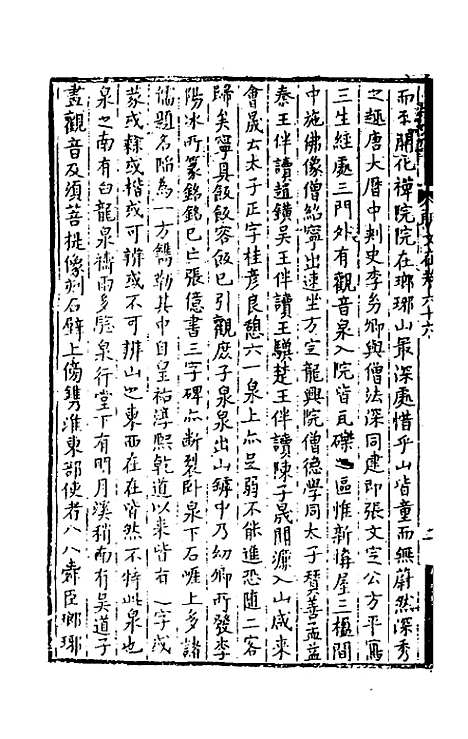 而至開化禪院院在瑯琊山最深處惜乎山皆童而無蔚然深秀
之趣唐大曆中刺史李幼卿與僧法深同建即張文定公方平寫
二生經處三門外有觀音泉入院皆瓦礫一區惟新搆屋三楹間
中施佛像僧紹寧出速坐方定龍興院僧德學同太子贊善孟益
秦王伴讀趙鐄吳王伴讀王驥楚王伴讀陳子晟聞濂入山咸來
會晟云太子正字桂彥良憩六一泉上亦足弱不能進恐隨二客
歸矣寧具飯飯客飯已引觀庶子泉泉出山罅中乃幼卿所發李
陽冰所篆銘銘已亡張億書三字碑亦斷裂卧泉下石崖上多諸
儒題名陷為一方鐫勒其中自皇祐淳熙乾道以來皆有之字或
篆或隸或楷或可辨或不可辨山之東西在在皆然不特此泉也
泉之南有白龍泉禱雨多驗泉行堂下有明月溪稍南有吳道子
畫觀音及須菩提像刻石壁上傍鐫淮東部使者八八壽臣瑯琊
明文在卷六十六
二